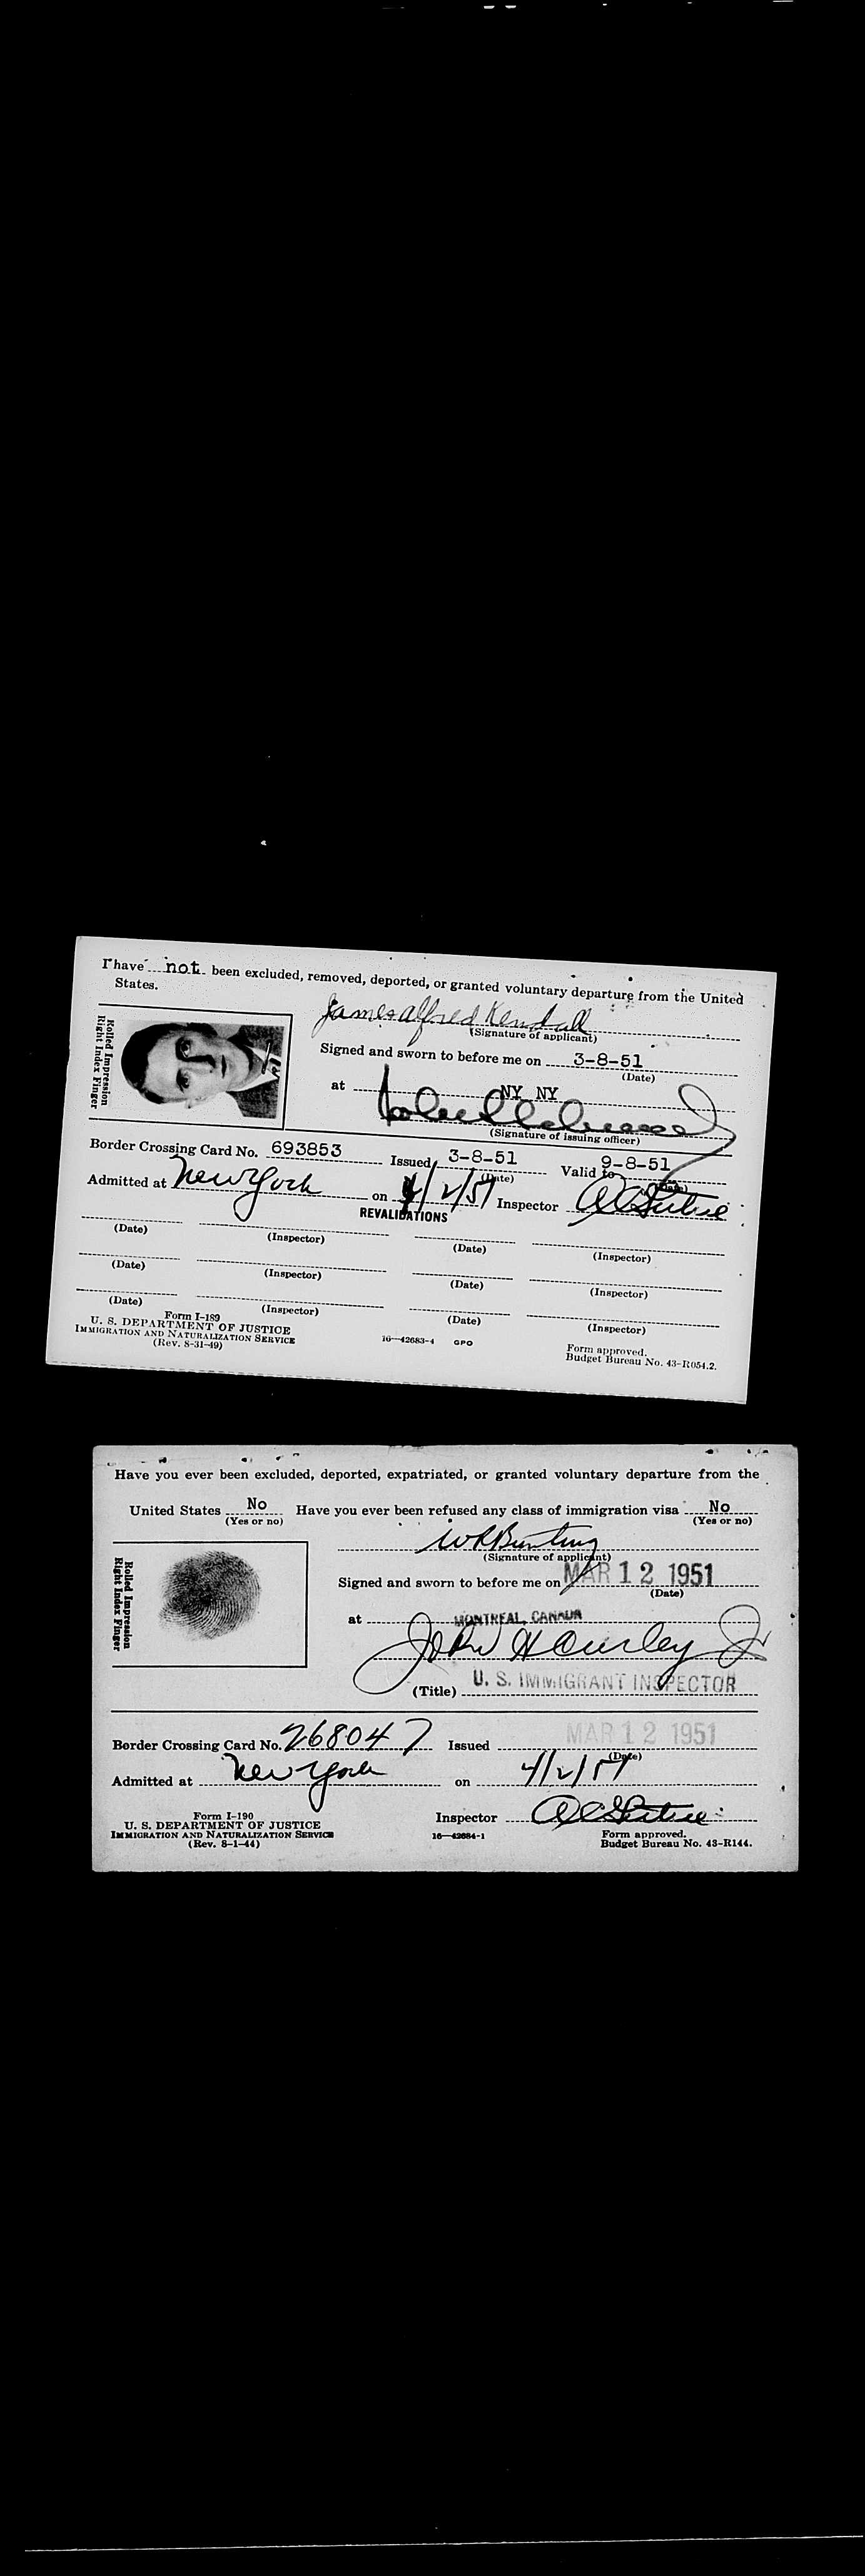 I have not been excluded, removed, deported, or granted voluntary departure from the United
States.
James Alfred Kendall
(Signature of applicant)
Rolled Impression
Right Index Finger
Signed and sworn to before me on 3-8-51
(Date)
at NY NY
(Signature of issuing officer)
Border Crossing Card No. 693853 Issued 3-8-51 Valid to 9-8-51
(Date) (Date)
Admitted at New York on 4/2/51 Inspector
REVALIDATIONS
(Date) (Inspector) (Date) (Inspector)
(Date) (Inspector) (Date) (Inspector)
(Date) (Inspector) (Date) (Inspector)
Form I-189
U. S. DEPARTMENT OF JUSTICE
IMMIGRATION AND NATURALIZATION SERVICE
(Rev. 8-31-49)
16—42683-4 GPO
Form approved.
Budget Bureau No. 43-R054.2.
Have you ever been excluded, deported, expatriated, or granted voluntary departure from the
United States No Have you ever been refused any class of immigration visa No
(Yes or no) (Yes or no)
W R Bunting
(Signature of applicant)
Rolled Impression
Right Index Finger
Signed and sworn to before me on MAR 12 1951
(Date)
at MONTREAL, CANADA
John H Curley Jr
(Title) U. S. IMMIGRANT INSPECTOR
Border Crossing Card No. 268047 Issued MAR 12 1951
(Date)
Admitted at New York on 4/2/51
Inspector
Form I-190
U. S. DEPARTMENT OF JUSTICE
IMMIGRATION AND NATURALIZATION SERVICE
(Rev. 8-1-44)
16—42684-1
Form approved.
Budget Bureau No. 43-R144.